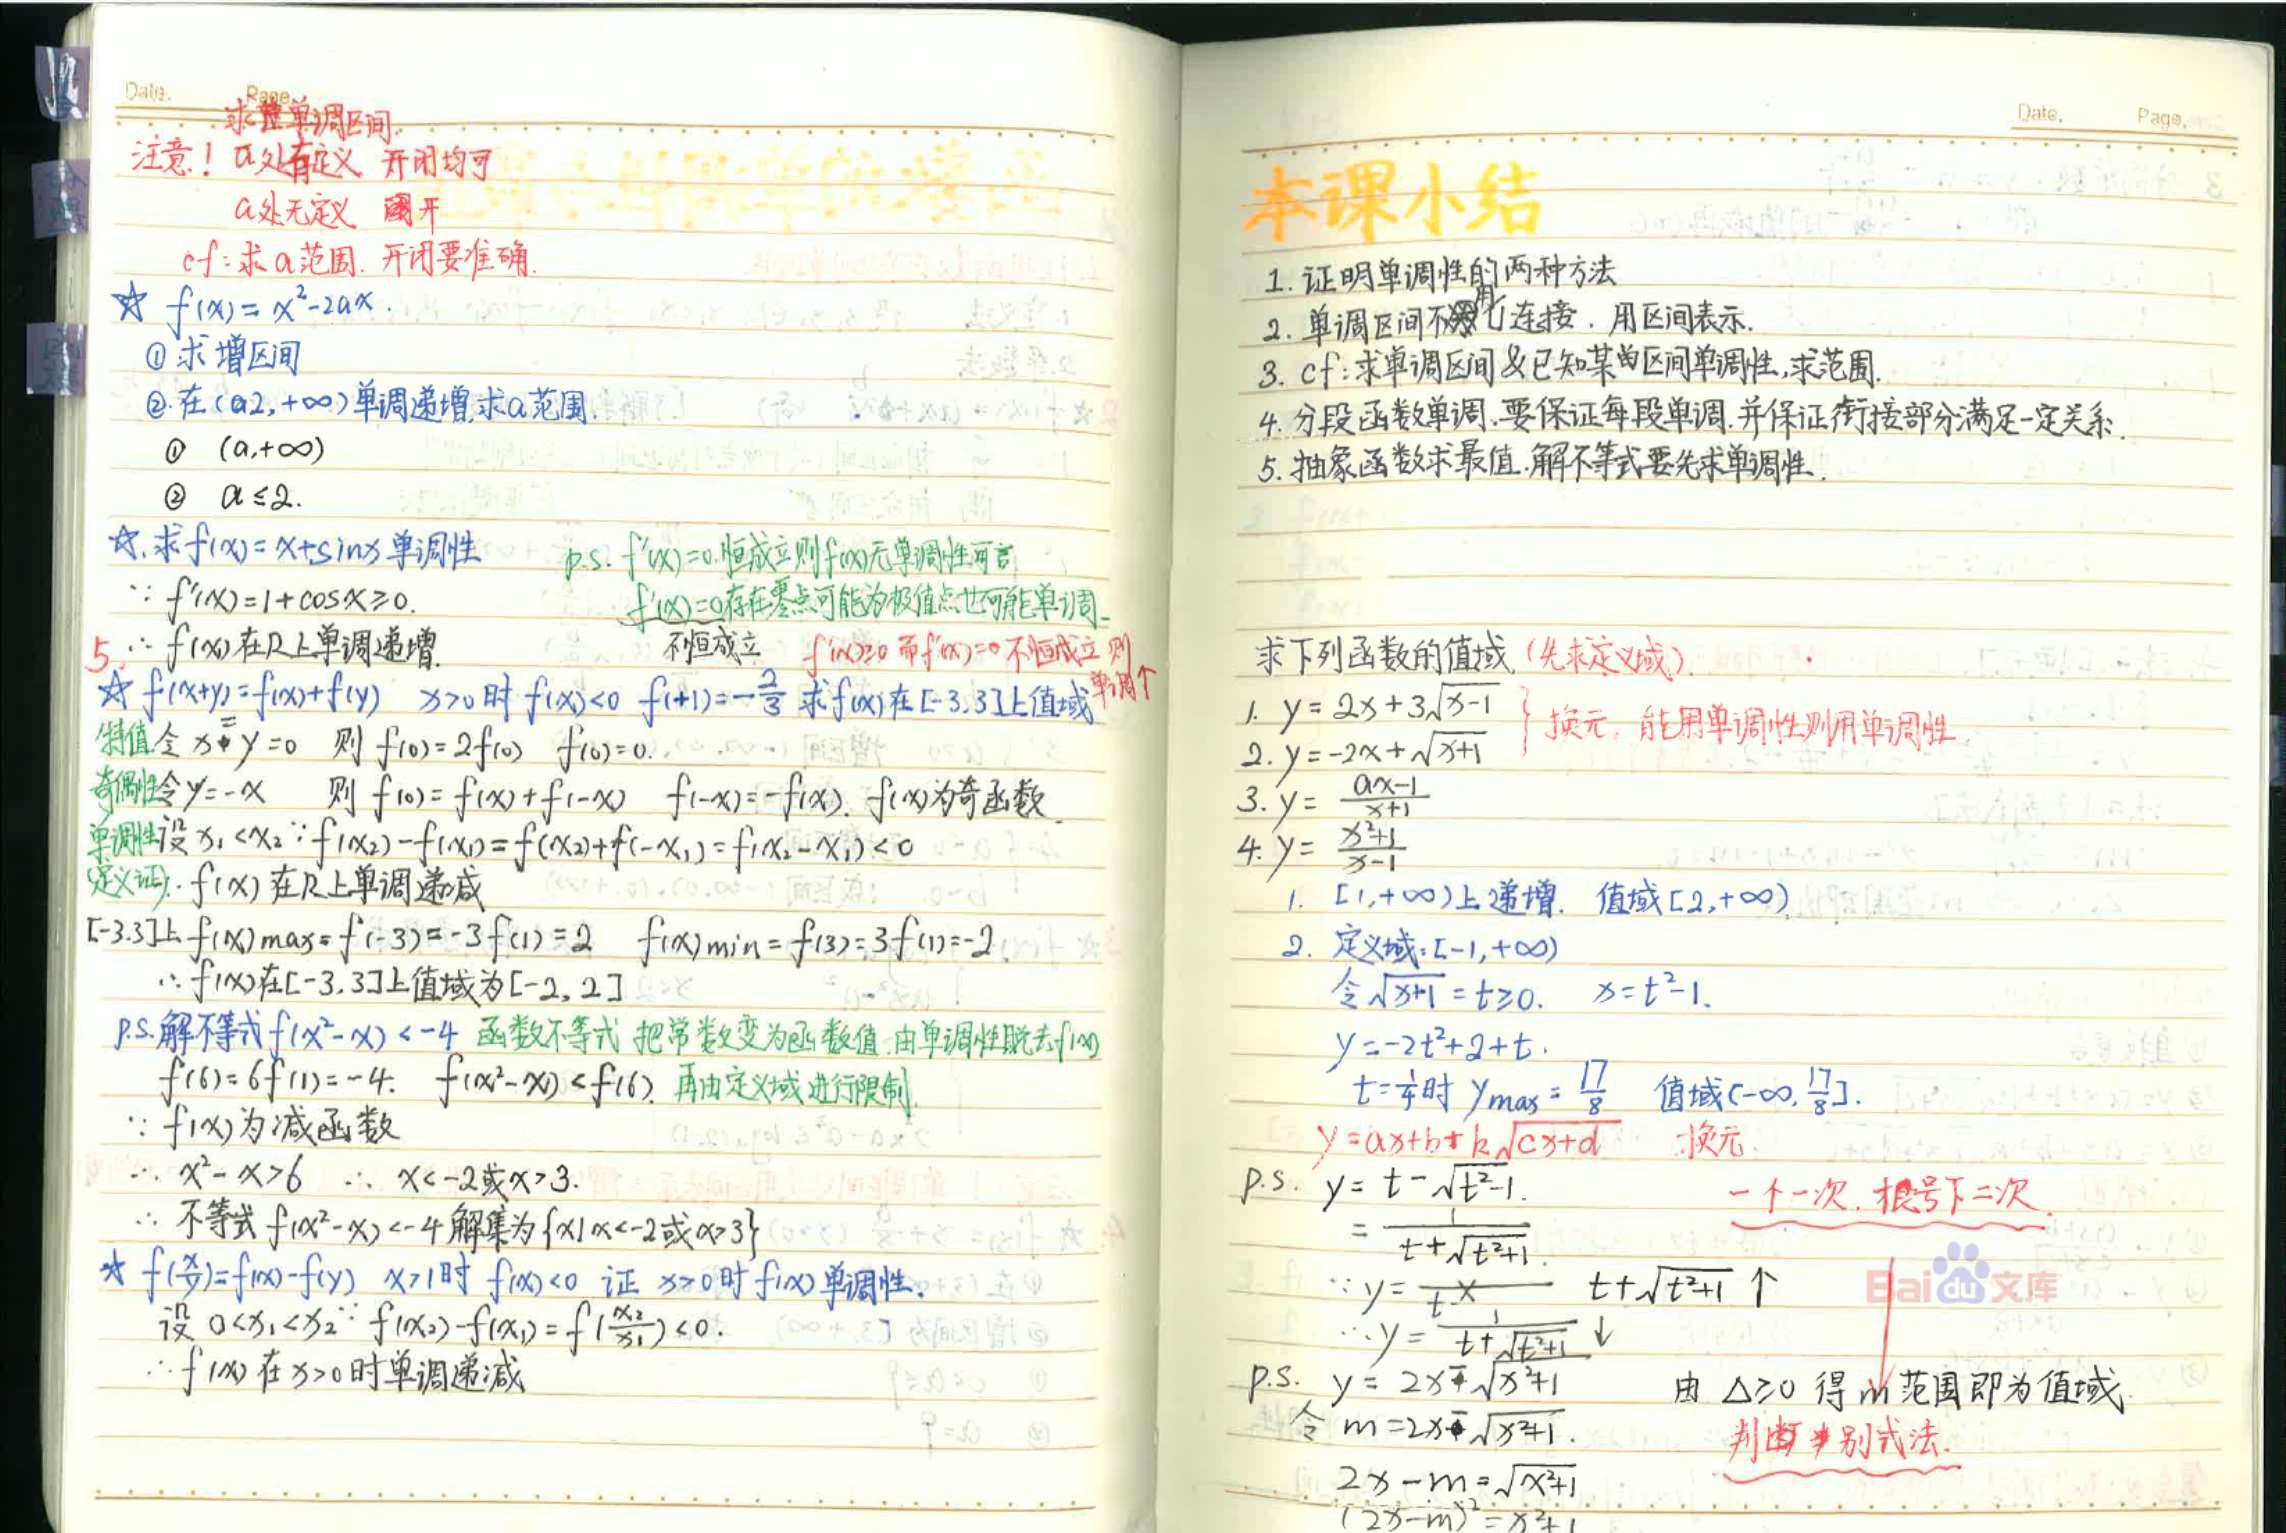 Date. Page.
求单调区间.
注意! a处有定义 开闭均可
a处无定义 开
cf:求a范围.开闭要准确.
☆ f(x)=x²-2ax.
① 求增区间
②.在(a2,+∞)单调递增,求a范围.
① (a,+∞)
② a≤2.
☆.求f(x)=x+sinx单调性
p.s. f'(x)=0.恒成立则f(x)无单调性可言
∵ f'(x)=1+cosx≥0.
f'(x)=0存在零点可能为极值点也可能单调_
∴ f(x)在R上单调递增.
不恒成立 f'(x)≥0 而f'(x)=0不恒成立则单调↑
5.
☆ f(x+y)=f(x)+f(y) x>0时 f(x)<0 f(+1)=-2/3 求f(x)在[-3.3]上值域
特值.令x=y=0 则 f(0)=2f(0) f(0)=0.
奇偶性令y=-x 则 f(0)=f(x)+f(-x) f(-x)=-f(x). f(x)为奇函数.
单调性设x₁<x₂∵f(x₂)-f(x₁)=f(x₂)+f(-x₁)=f(x₂-x₁)<0
(定义证)∴f(x)在R上单调递减
[-3.3]上f(x)max=f(-3)=-3f(1)=2 f(x)min=f(3)=3f(1)=-2.
∴f(x)在[-3.3]上值域为[-2,2]
p.s.解不等式f(x²-x)<-4 函数不等式 把常数变为函数值.由单调性脱去f(x)
f(6)=6f(1)=-4. f(x²-x)<f(6). 再由定义域进行限制
∵ f(x)为减函数
∴ x²-x>6 ∴ x<-2或x>3.
∴ 不等式f(x²-x)<-4解集为{x|x<-2或x>3}
☆ f(x/y)=f(x)-f(y) x>1时 f(x)<0 证 x>0时f(x)单调性.
设 0<x₁<x₂∵ f(x₂)-f(x₁)=f(x₂/x₁)<0.
∴f(x)在x>0时单调递减
Date. Page.
本课小结
1. 证明单调性的两种方法
2. 单调区间不用∪连接.用区间表示.
3. cf:求单调区间&已知某区间单调性,求范围.
4. 分段函数单调.要保证每段单调.并保证衔接部分满足一定关系.
5. 抽象函数求最值.解不等式要先求单调性.
求下列函数的值域.(先求定义域).
1. y=2x+3√(x-1)
2. y=-2x+√(x+1)
换元, 能用单调性则用单调性
3. y= (ax-1)/(x+1)
4. y= (x²+1)/(x-1)
1. [1,+∞)上递增. 值域[2,+∞)
2. 定义域:[-1,+∞)
令√(x+1)=t≥0. x=t²-1.
y=-2t²+2+t.
t=1/4时 ymax=17/8 值域(-∞,17/8].
y=ax+b+k√(cx+d) :换元
p.s. y=t-√(t²-1).
一个一次.根号下二次
= 1/(t+√(t²+1)).
∵ y= t+√(t²+1) ↑
∴ y= 1/(t+√(t²+1)) ↓
p.s. y=2x-√(x²+1)
由 △≥0 得m范围即为值域.
令 m=2x-√(x²+1).
判别式法.
2x-m=√(x²+1)
(2x-m)²=x²+1
Baidu文库